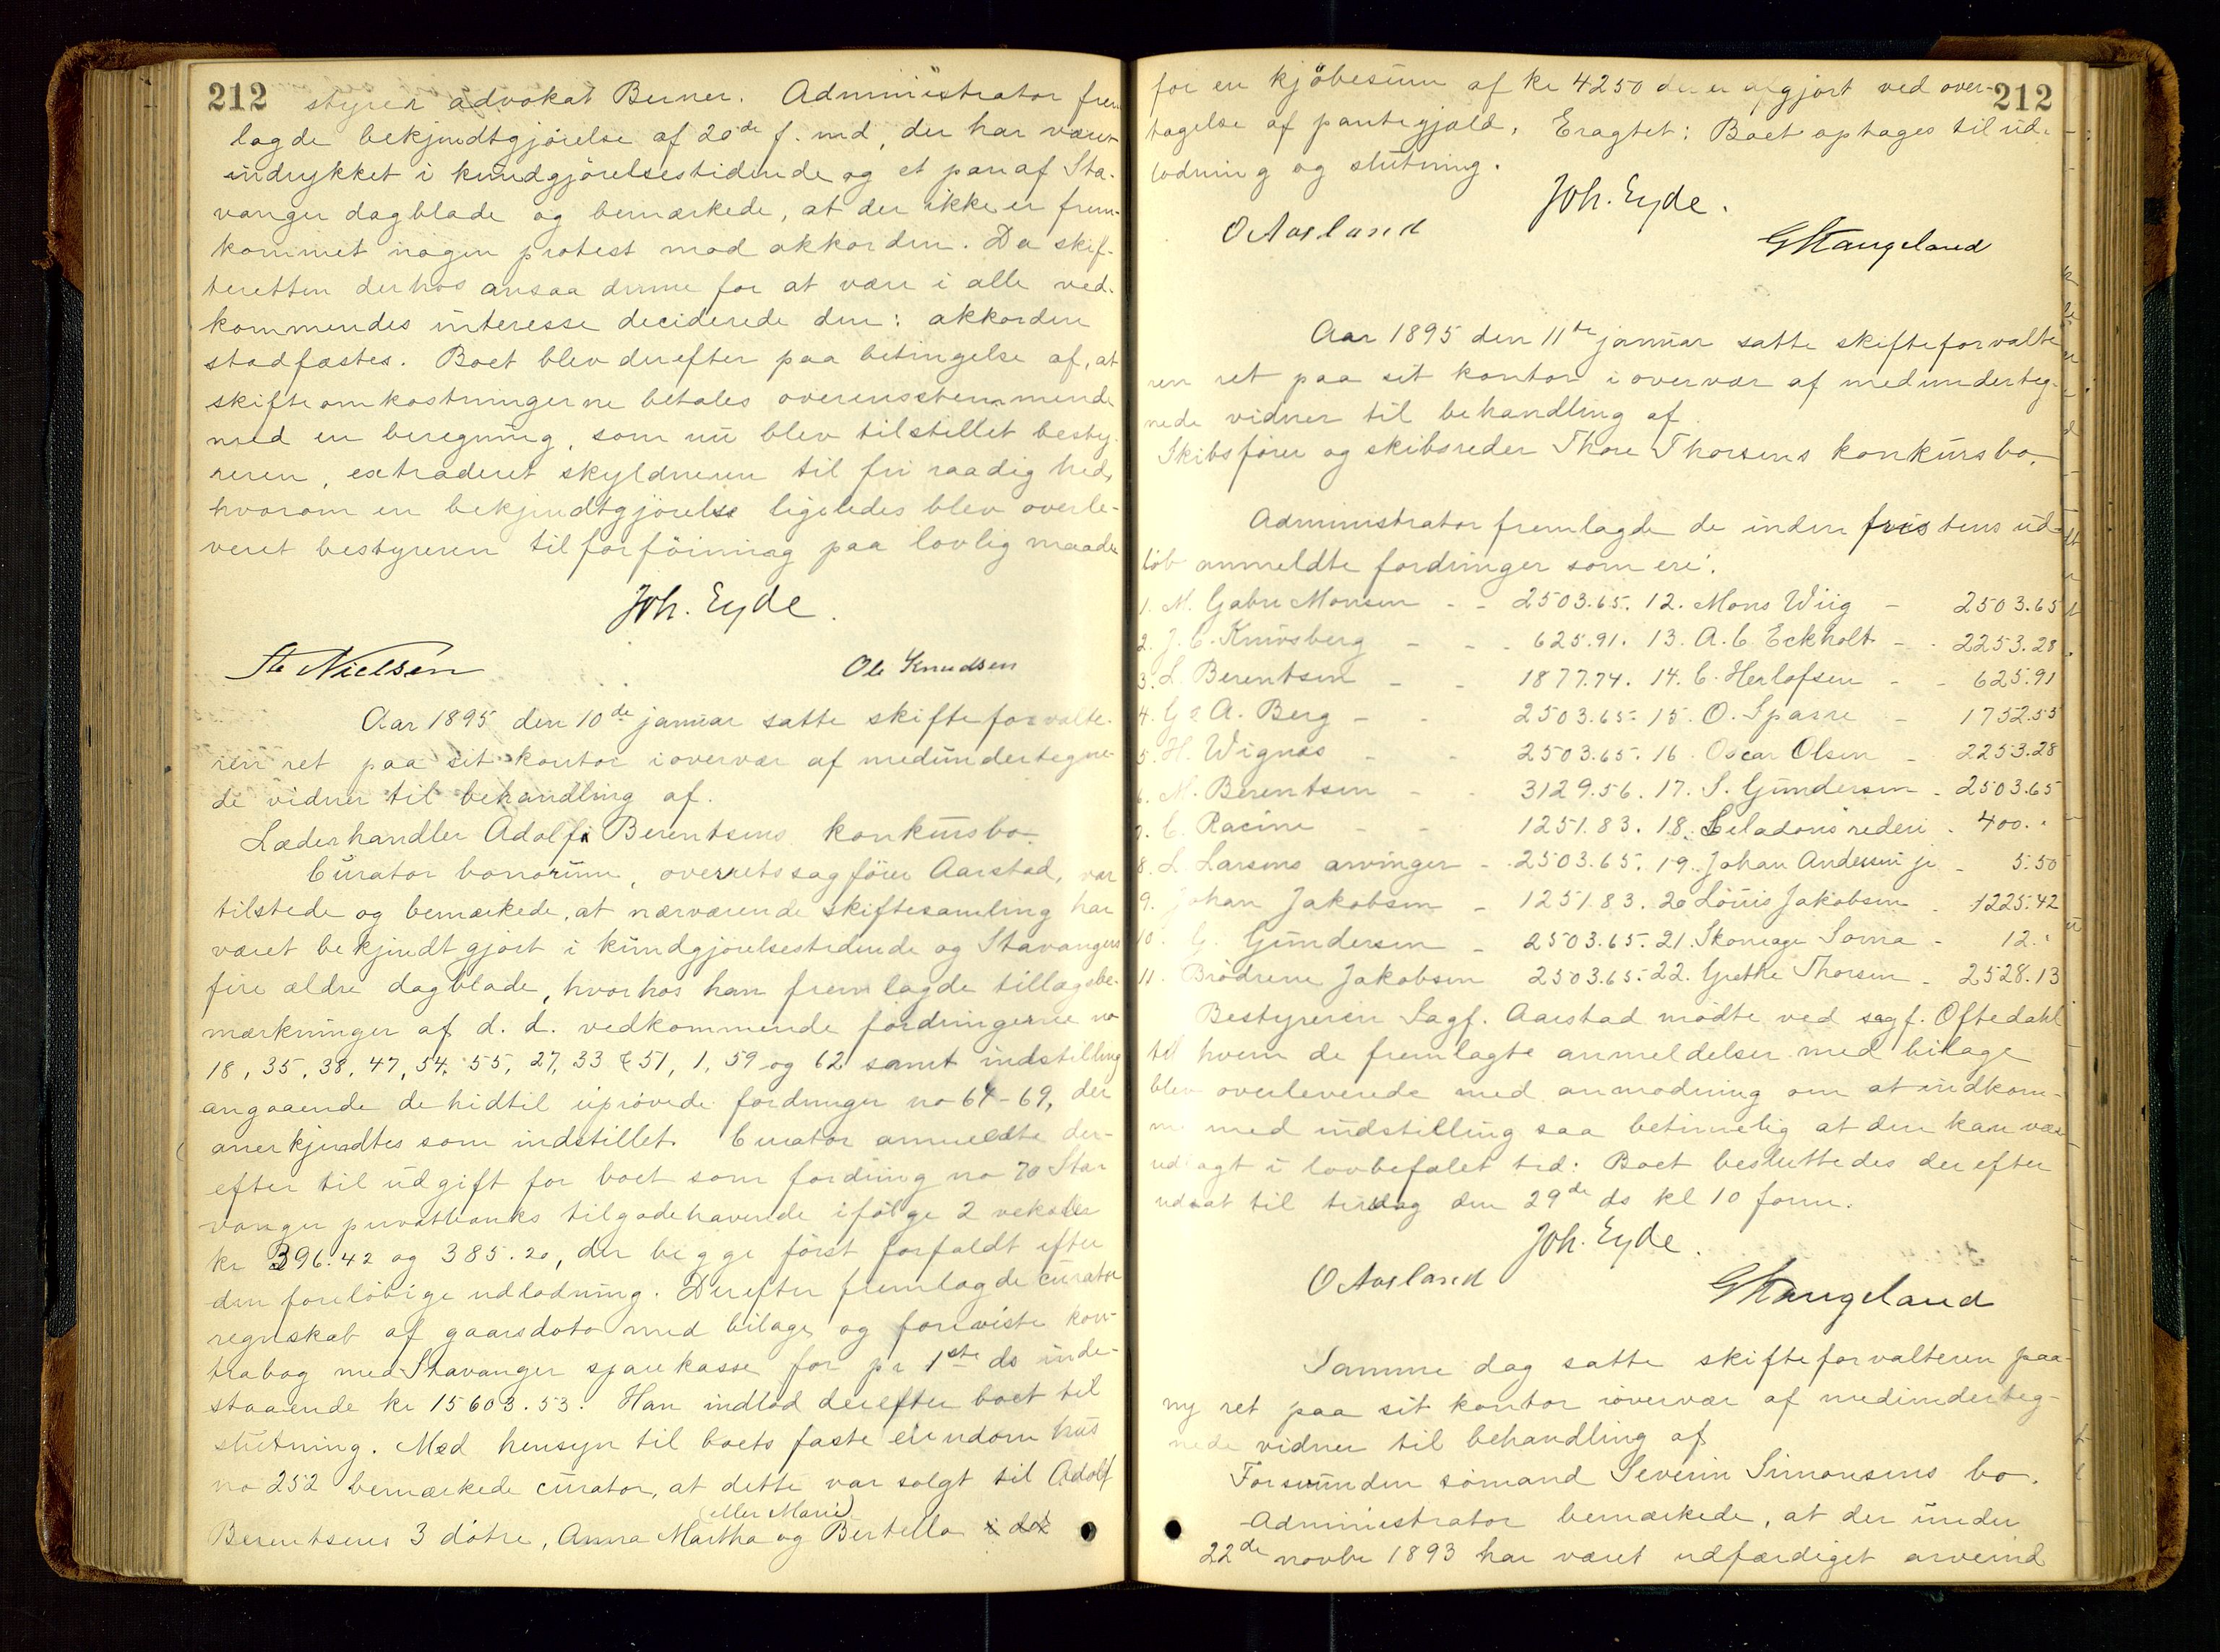 212 styrer advokat Berner. Administrator frem
lagde bekjendtgjörelse af 20de f. md, der har været
indrykket i kundgjörelsestidende og et par af Sta-
vanger dagblade og bemærkede, at der ikke er frem-
kommet nogen protest mod akkorden. Da skif-
teretten derhos ansaa denne for at være i alle ved-
kommendes interesse deciderede den: akkorden
stadfæstes. Boet blev derefter paa betingelse af, at
skifteomkostningerne betales overensstemmende
med en beregning, som nu blev tilstillet besty-
reren, extraderet skyldneren til fri raadighed,
hvorom en bekjendtgjörelse ligeledes blev overle-
veret bestyreren til forföining paa lovlig maade
Joh. Eyde.
Nielsen Ole Knudsen
Aar 1895 den 10de januar satte skifteforvalte-
ren ret paa sit kontor i overvær af medundertegne-
de vidner til behandling af.
Læderhandler Adolf Berentsens konkursbo
Curator bonorum, overretssagförer Aarstad, var
tilstede og bemærkede, at nærværende skiftesamling har
været bekjendtgjort i kundgjörelsestidende og Stavangers
fire ældre dagblade, hvorhos han fremlagde tillægsbe-
mærkninger af d. d. vedkommende fordringerne no
18, 35, 38, 47, 54, 55, 27, 33 & 51, 1, 59 og 62 samt indstilling
angaaende de hidtil upróvede fordringer no 64-69, der
anerkjendtes som indstillet. Curator anmeldte der-
efter til udgift for boet som fordring no 70 Sta-
vanger privatbanks tilgodehavende ifölge 2 veksler
kr 396.42 og 385.20, der begge först forfaldt efter
den forelöbige udlodning. Derefter fremlagde curator
regnskab af gaarsdato med bilage og foreviste kon-
trabog med Stavanger sparekasse for pr 1ste ds inde-
staaende kr 15603.53. Han indlod derefter boet til
slutning. Med hensyn til boets faste eiendom hus
no 252 bemærkede curator, at dette var solgt til Adolf
(eller Marie)
Berentsens 3 dötre, Anna Martha og Bertella i det
for en kjöbesum af kr 4250 der er afgjort ved over- 212
tagelse af pantegjæld. Eragtet: Boet optages til ud-
lodning og slutning.
Joh. Eyde.
O Aasland GStangeland
Aar 1895 den 11te januar satte skifteforvalte
ren ret paa sit kontor i overvær af medunderteg-
nede vidner til behandling af
Skibsförer og skibsreder Thore Thorsens konkursbo.
Administrator fremlagde de inden fristens ud-
löb anmeldte fordringer som ere:
1. M. Gabr Monsen - - 2503.65. 12. Mons Wiig - 2503.65
2. J. C. Knivsberg - - - 625.91. 13. A. C. Eckholt - - 2253.28
3. L. Berentsen - - 1877.74. 14. C. Herlofsen - - 625.91
4. G & A. Berg - - 2503.65. 15. O. Sparre - 1752.55
5. H. Wignæs - - 2503.65. 16. Oscar Olsen - 2253.28
6. N. Berentsen - - 3129.56. 17. S. Gundersen - 2503.65
7. C. Racine - - 1251.83. 18. Celadons rederi - 400. "
8. L Larsens arvinger - 2503.65. 19. Johan Andersen jr - 5.50
9. Johan Jakobsen - 1251.83. 20 Louis Jakobsen - 1225.42
10. G. Gundersen - 2503.65. 21. Skomager Soma - 12. "
11. Brödrene Jakobsen 2503.65. 22. Grethe Thorsen - 2528.13
Bestyreren Sagf. Aarstad mödte ved sagf. Oftedahl
til hvem de fremlagte anmeldelser med bilage
blev overleverede med anmodning om at indkom-
me med indstilling saa betimelig at den kan være
udlagt i lovbefalet tid: Boet besluttedes derefter
udsat til tirsdag den 29de ds kl 10 form.
Joh. Eyde.
O Aasland GStangeland
Samme dag satte skifteforvalteren paa
ny ret paa sit kontor i overvær af medunderteg-
nede vidner til behandling af
Forsvunden sömand Severin Simonsens bo.
Administrator bemærkede, at der under
22de novbr 1893 har været udfærdiget arveind